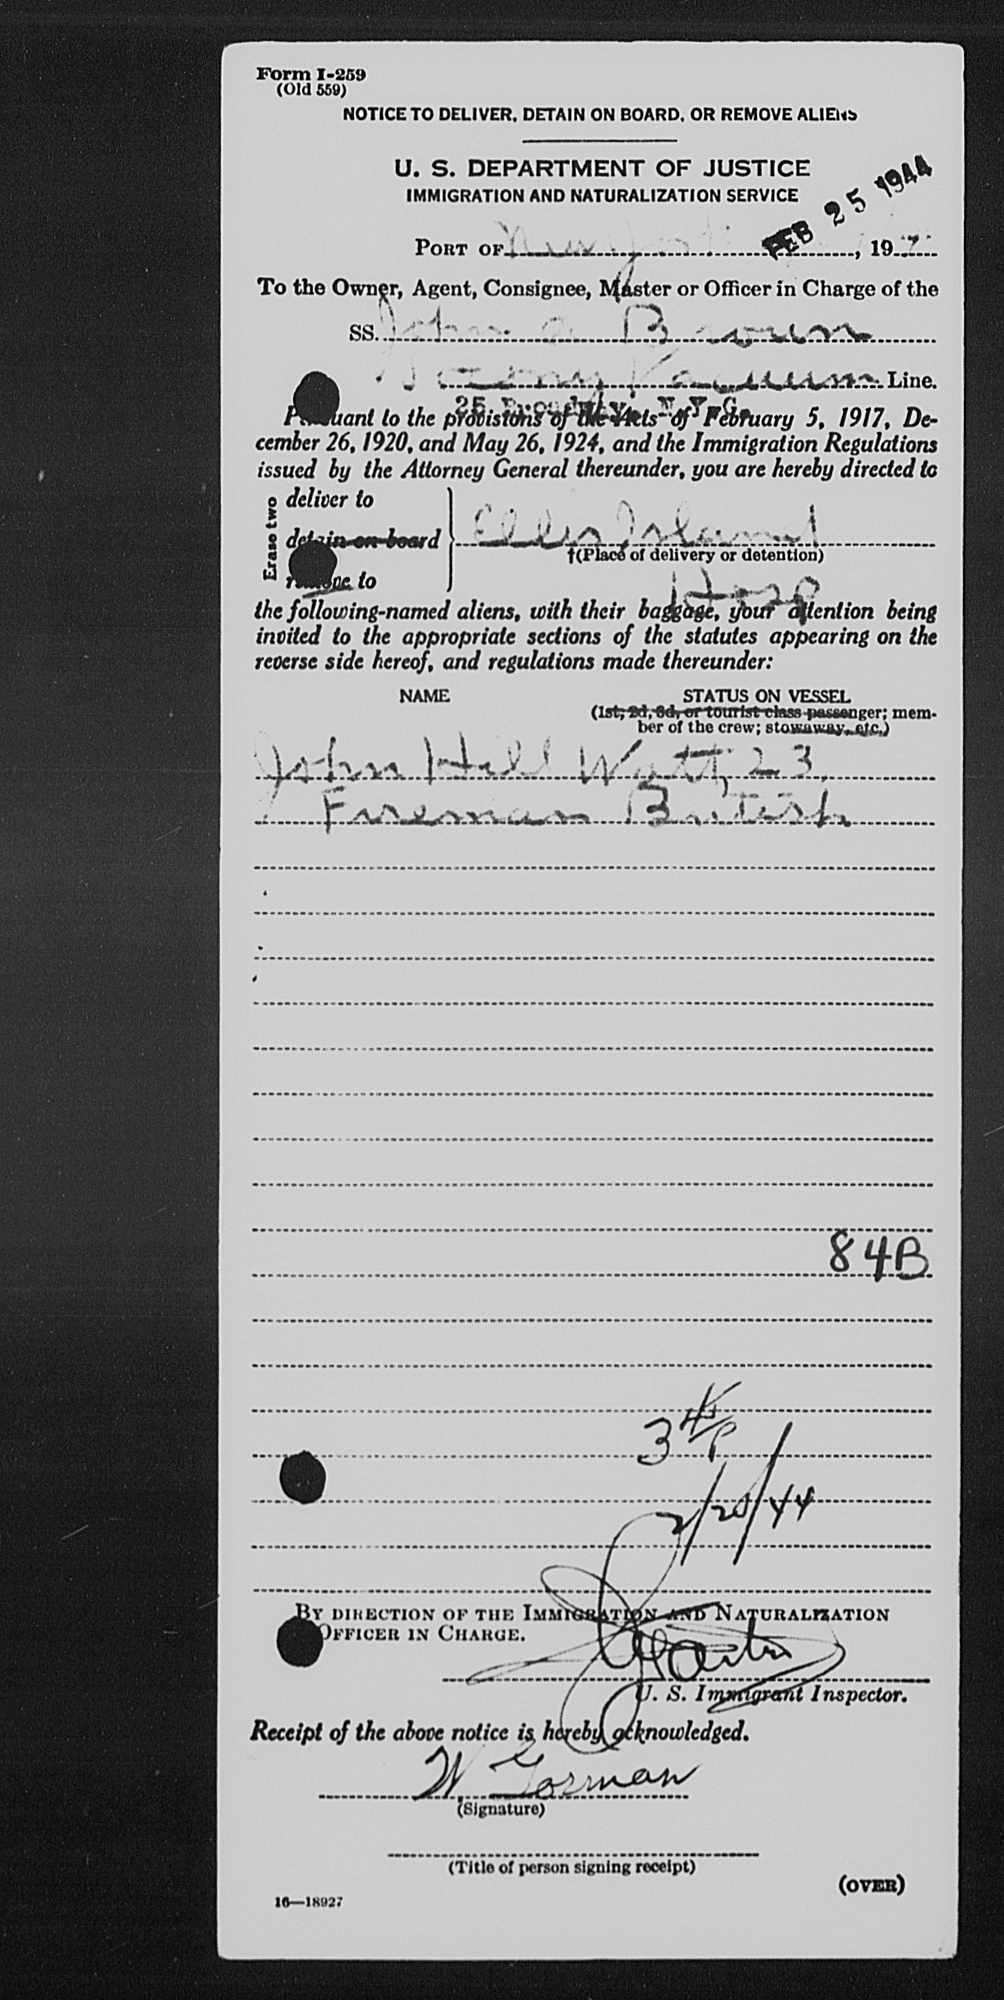 Form I-259
(Old 559)
NOTICE TO DELIVER, DETAIN ON BOARD, OR REMOVE ALIENS
U. S. DEPARTMENT OF JUSTICE
IMMIGRATION AND NATURALIZATION SERVICE
FEB 25 1944
PORT OF New York, 19
To the Owner, Agent, Consignee, Master or Officer in Charge of the
SS. John A Brown
Socony Vacuum Line.
25 Broadway, N.Y.C.
Pursuant to the provisions of the Acts of February 5, 1917, De-
cember 26, 1920, and May 26, 1924, and the Immigration Regulations
issued by the Attorney General thereunder, you are hereby directed to
Erase two
deliver to
detain on board
remove to
Ellis Island
†(Place of delivery or detention)
Hosp
the following-named aliens, with their baggage, your attention being
invited to the appropriate sections of the statutes appearing on the
reverse side hereof, and regulations made thereunder:
NAME STATUS ON VESSEL
(1st, 2d, 3d, or tourist class passenger; mem-
ber of the crew; stowaway, etc.)
John Hill Watt, 23,
Fireman British
84B
3 45 P
2/25/44
BY DIRECTION OF THE IMMIGRATION AND NATURALIZATION
OFFICER IN CHARGE.
U. S. Immigrant Inspector.
Receipt of the above notice is hereby acknowledged.
W Gorman
(Signature)
(Title of person signing receipt)
(OVER)
16—18927